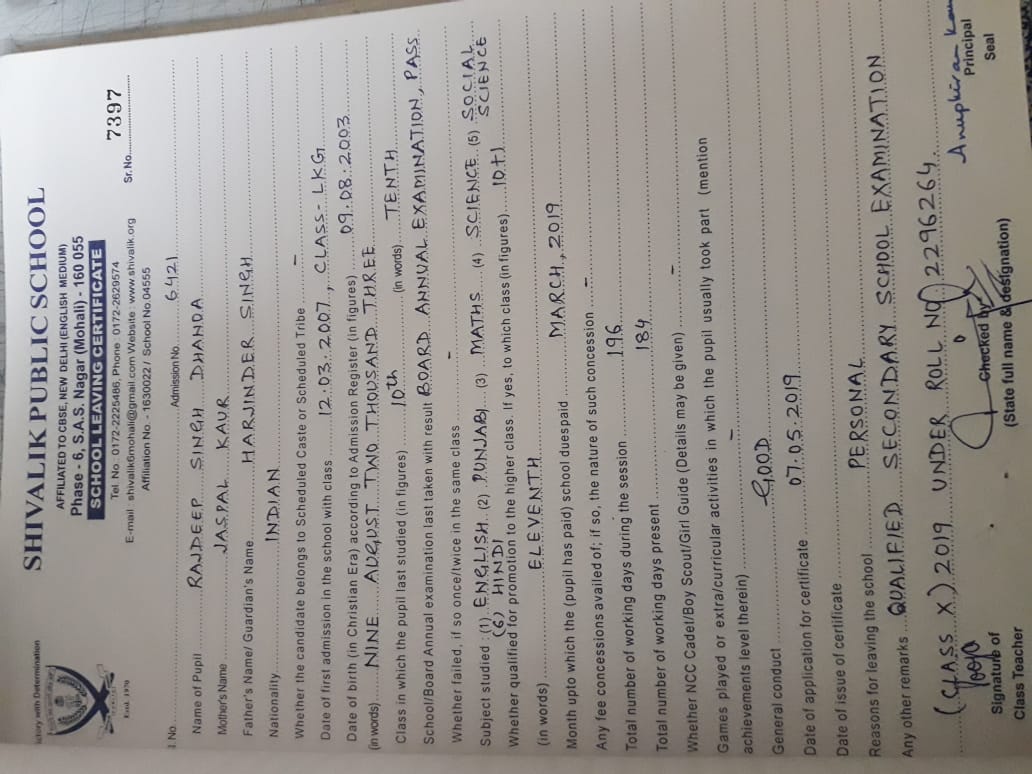 ictory with Determination
Estd. 1976
SHIVALIK PUBLIC SCHOOL
AFFILIATED TO CBSE, NEW DELHI (ENGLISH MEDIUM)
Phase - 6, S.A.S. Nagar (Mohali) - 160 055
SCHOOL LEAVING CERTIFICATE
Tel. No.: 0172-2225486, Phone : 0172-2629574
E-mail : shivalik6mohali@gmail.com Website : www.shivalik.org Sr. No. 7397
Affiliation No. - 1630022 / School No.04555
I. No. Admission No. 6421
Name of Pupil RAJDEEP SINGH DHANDA
Mother's Name JASPAL KAUR
Father's Name/ Guardian's Name HARJINDER SINGH
Nationality INDIAN
Whether the candidate belongs to Scheduled Caste or Scheduled Tribe -
Date of first admission in the school with class 12.03.2007, CLASS- LKG
Date of birth (in Christian Era) according to Admission Register (in figures) 09.08.2003
(in words) NINE AUGUST TWO THOUSAND THREE
Class in which the pupil last studied (in figures) 10th (in words) TENTH
School/Board Annual examination last taken with result BOARD ANNUAL EXAMINATION, PASS
Whether failed, if so once/twice in the same class -
Subject studied : (1) ENGLISH (2) PUNJABI (3) MATHS (4) SCIENCE (5) SOCIAL SCIENCE
(6) HINDI
Whether qualified for promotion to the higher class. If yes, to which class (in figures) 10+1
(in words) ELEVENTH
Month upto which the (pupil has paid) school duespaid MARCH, 2019
Any fee concessions availed of; if so, the nature of such concession -
Total number of working days during the session 196
Total number of working days present 184
Whether NCC Cadet/Boy Scout/Girl Guide (Details may be given) -
Games played or extra/curricular activities in which the pupil usually took part (mention
achievements level therein) -
General conduct GOOD
Date of application for certificate 07.05.2019
Date of issue of certificate
Reasons for leaving the school PERSONAL
Any other remarks QUALIFIED SECONDARY SCHOOL EXAMINATION
(CLASS X) 2019 UNDER ROLL NO 2296264
Pooja Anupkiran Kau
Signature of Checked by Principal
Class Teacher (State full name & designation) Seal